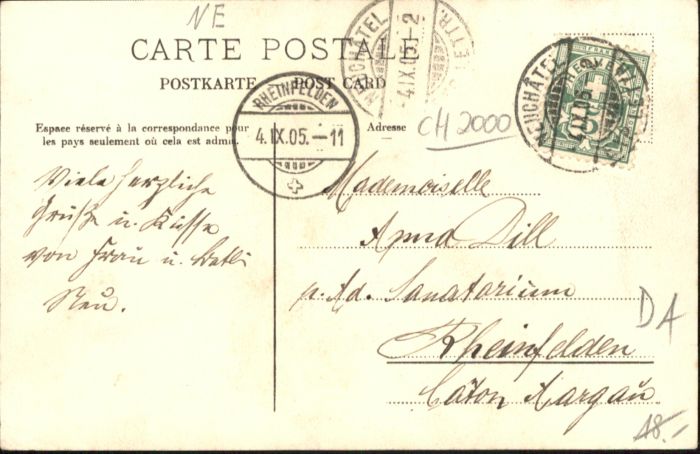 NE
CARTE POSTALE
POSTKARTE POST CARD
Espace réservé à la correspondance pour
les pays seulement où cela est admis.
Adresse
CH 2000
NEUCHÂTEL
LETTR.
4.IX.05.-2
NEUCHÂTEL
4.IX.05
RHEINFELDEN
4.IX.05.-11
Viele herzliche
Grüsse u. Küsse
von Frau u. Betli
Neu.
Mademoiselle
Anna Dill
p. Ad. Sanatorium
Rheinfelden
Caton Aargau
DA
18.-